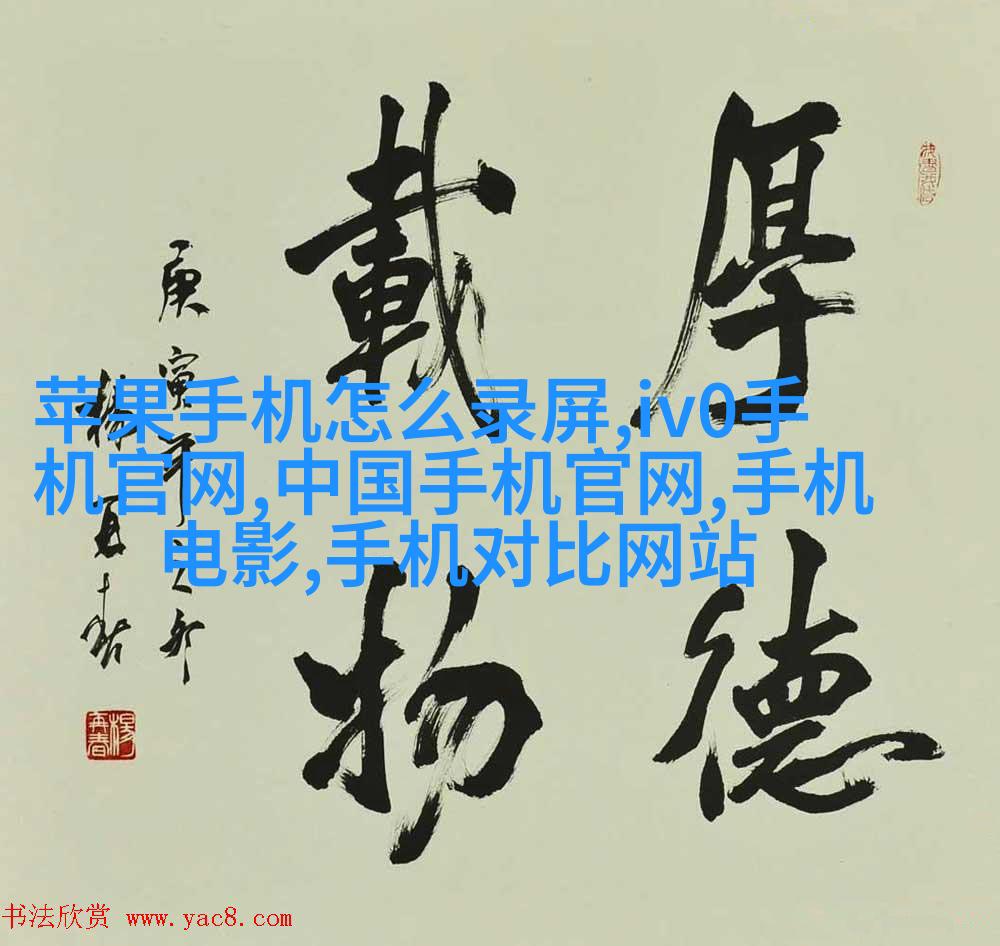 厚德
載物
庚寅年之卯
楊再春
楊再春
苹果手机怎么录屏,iv0手
机官网,中国手机官网,手机
电影,手机对比网站
书法欣赏 www.yac8.com